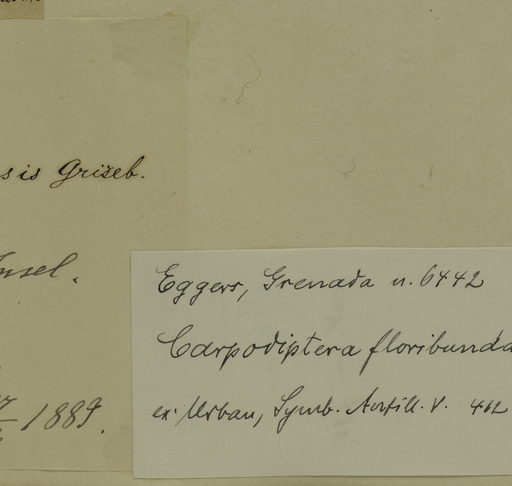 sis Griseb.
Insel.
1889.
Eggers, Grenada n. 6442
Carpodiptera floribunda
ex Urban, Symb. Antill. V. 412